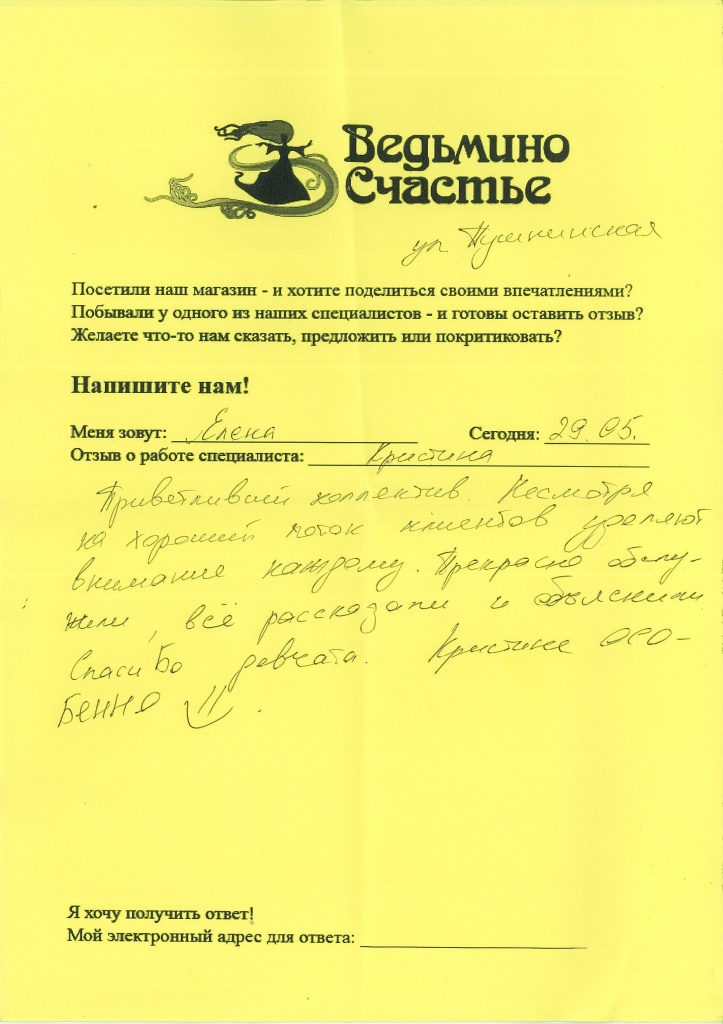 Ведьмино
Счастье
ул Пушкинская
Посетили наш магазин - и хотите поделиться своими впечатлениями?
Побывали у одного из наших специалистов - и готовы оставить отзыв?
Желаете что-то нам сказать, предложить или покритиковать?
Напишите нам!
Меня зовут: Елена Сегодня: 29.05.
Отзыв о работе специалиста: Кристина
Приветливый коллектив. Несмотря
на хороший поток клиентов уделяют
внимание каждому. Прекрасно обслу-
жили, всё рассказали и объяснили
Спасибо девчата. Кристине осо-
бенно
Я хочу получить ответ!
Мой электронный адрес для ответа: